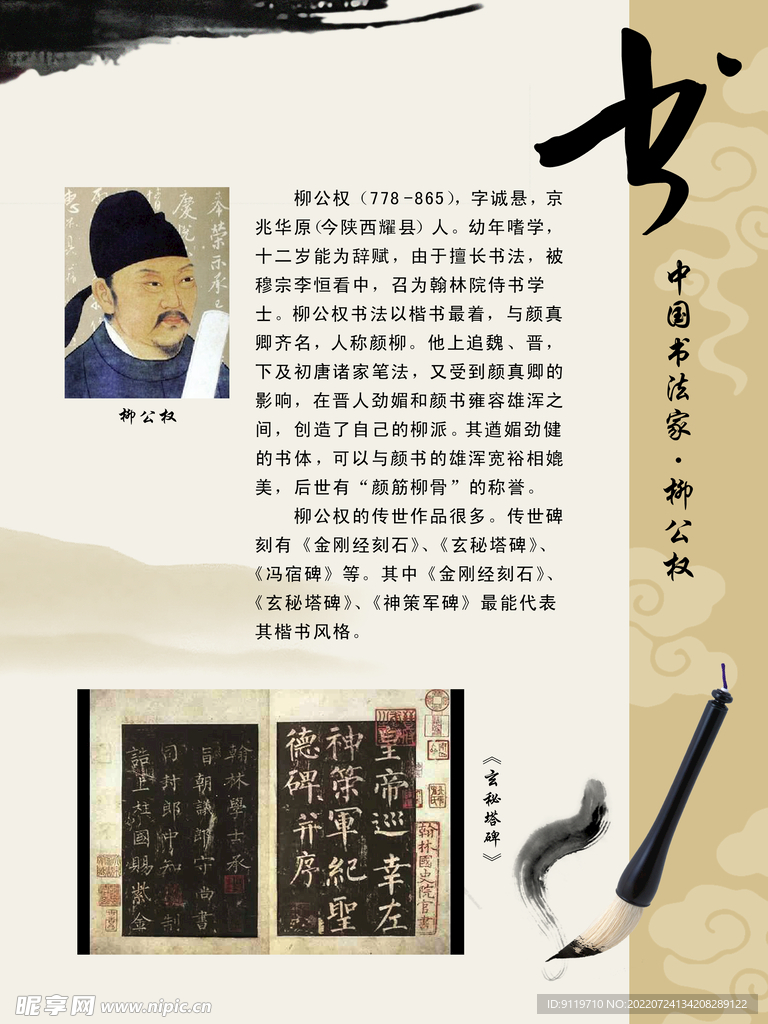 书
中国书法家·柳公权
柳公权（778-865），字诚悬，京
兆华原(今陕西耀县）人。幼年嗜学，
十二岁能为辞赋，由于擅长书法，被
穆宗李恒看中，召为翰林院侍书学
士。柳公权书法以楷书最着，与颜真
卿齐名，人称颜柳。他上追魏、晋，
下及初唐诸家笔法，又受到颜真卿的
影响，在晋人劲媚和颜书雍容雄浑之
间，创造了自己的柳派。其遒媚劲健
的书体，可以与颜书的雄浑宽裕相媲
美，后世有“颜筋柳骨”的称誉。
柳公权的传世作品很多。传世碑
刻有《金刚经刻石》、《玄秘塔碑》、
《冯宿碑》等。其中《金刚经刻石》、
《玄秘塔碑》、《神策军碑》最能代表
其楷书风格。
柳公权
皇帝巡幸左
神策軍紀聖
德碑并序
翰林學士承
旨朝議郎守尚書
司封郎中知制
誥上柱國賜紫金
翰林國史院官書
《玄秘塔碑》
昵享网 www.nipic.cn
ID:9119710 NO:20220724134208289122